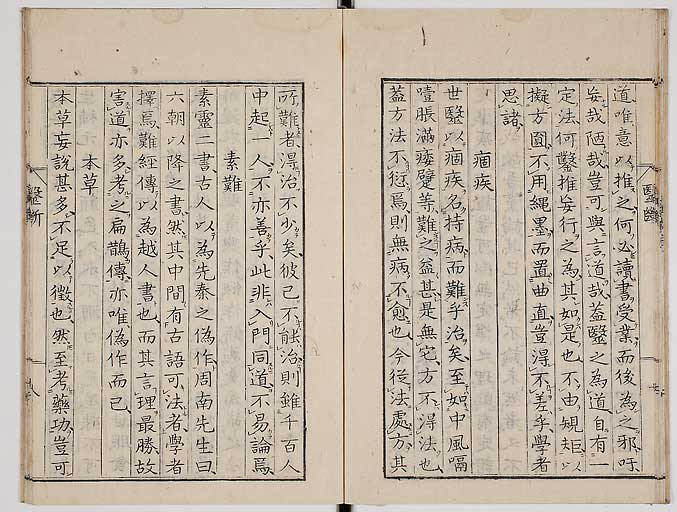 道唯意以推之何必讀書受業而後為之邪吁
妄哉陋哉豈可與言道哉蓋毉之為道自有一
定法何鑿推妄行之為其如是也不由規矩以
擬方圓不用繩墨而置曲直豈得不差乎學者
思諸
痼疾
世毉以痼疾名持病而難乎治矣至如中風嗝
噎脹滿痿躄等難之益甚是無它方不得法也
蓋方法不愆焉則無病不愈也今從法處方其
所難者得治不少矣彼已不能治則雖千百人
中起一人不亦善乎此非入門同道不易論焉
素難
素靈二書古人以為先秦之偽作周南先生曰
六朝以降之書然其中間有古語可法者學者
擇焉難經傳以為越人書也而其言理最勝故
害道亦多考之扁鵲傳亦唯偽作而已
本草
本草妄說甚多不足以徵也然至考藥功豈可
毉斷